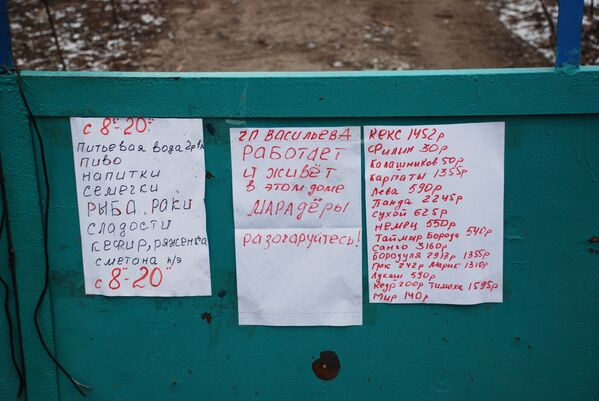 с 8⁰⁰-20⁰⁰
Питьевая вода 2р 1л
пиво
напитки
семечки
РЫБА, РАКИ
сладости
кефир, ряженка
сметана п/э
с 8⁰⁰-20⁰⁰
ГП ВАСИЛЬЕВА
РАБОТАЕТ
И ЖИВЁТ
В ЭТОМ ДОМЕ
МАРАДЁРЫ
РАЗОЧАРУЙТЕСЬ!
КЕКС 1452р
Филин 30р
Калашников 50р
Карпаты 1355р
Лева 590р
Панда 2245р
Сухой 625р
немец 550р
Таймыр Борода 540р
Санчо 3160р
Бородуля 2913р 1355р
Грек 242р Марик 1310р
Лукаш 590р
Кедр 200р Тимоха 1595р
Мир 140р